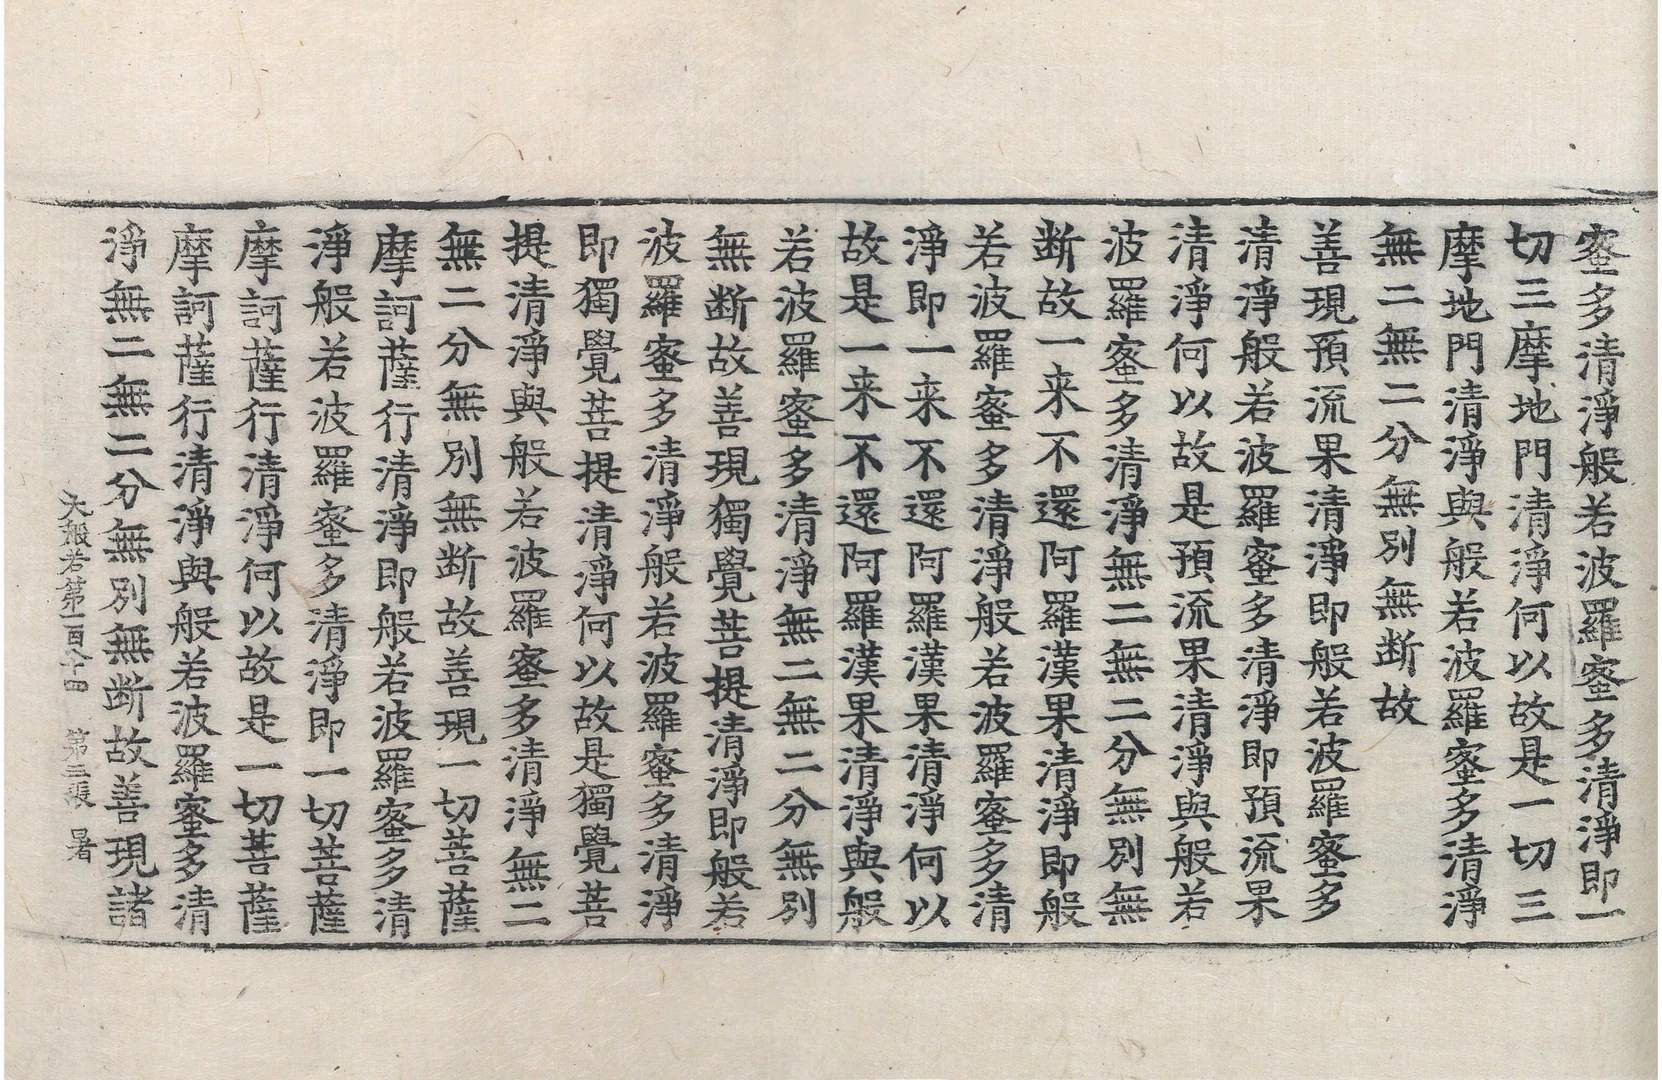 蜜多清淨般若波羅蜜多清淨即一
切三摩地門清淨何以故是一切三
摩地門清淨與般若波羅蜜多清淨
無二無二分無別無断故
善現預流果清淨即般若波羅蜜多
清淨般若波羅蜜多清淨即預流果
清淨何以故是預流果清淨與般若
波羅蜜多清淨無二無二分無別無
断故一来不還阿羅漢果清淨即般
若波羅蜜多清淨般若波羅蜜多清
淨即一来不還阿羅漢果清淨何以
故是一来不還阿羅漢果清淨與般
若波羅蜜多清淨無二無二分無別
無断故善現獨覺菩提清淨即般若
波羅蜜多清淨般若波羅蜜多清淨
即獨覺菩提清淨何以故是獨覺菩
提清淨與般若波羅蜜多清淨無二
無二分無別無断故善現一切菩薩
摩訶薩行清淨即般若波羅蜜多清
淨般若波羅蜜多清淨即一切菩薩
摩訶薩行清淨何以故是一切菩薩
摩訶薩行清淨與般若波羅蜜多清
淨無二無二分無別無断故善現諸
大般若第一百八十四 第三張 暑